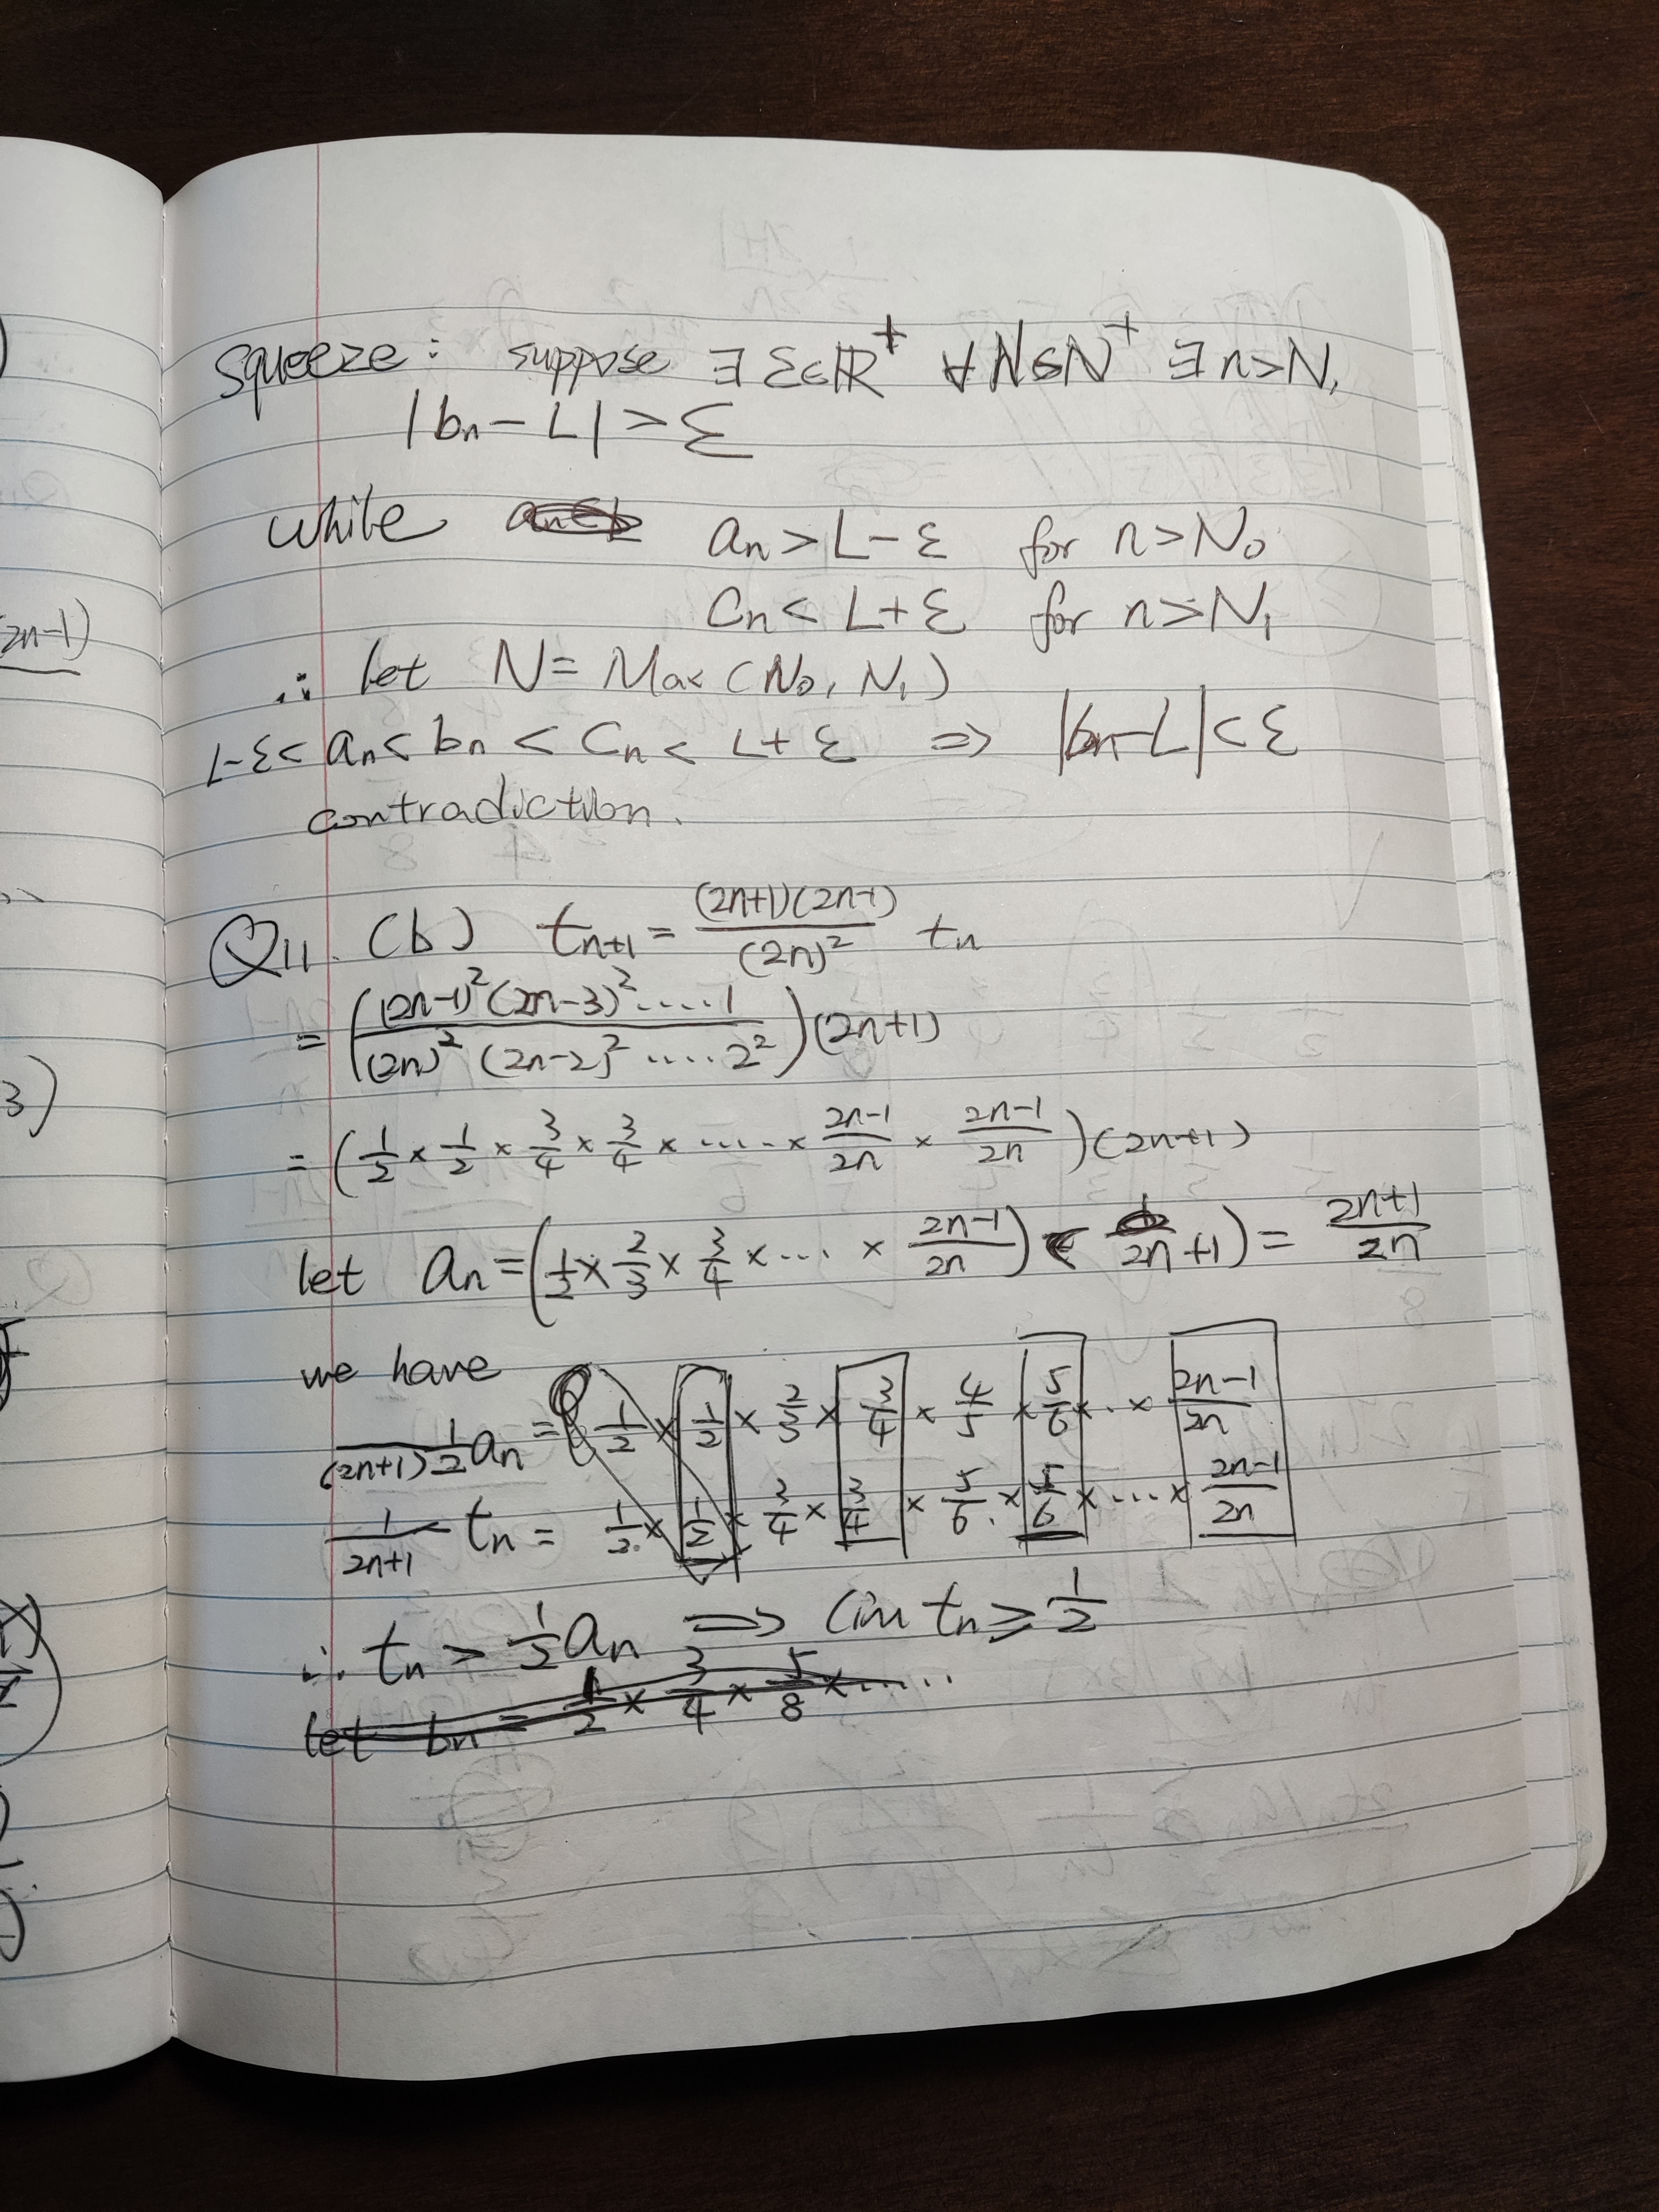 Squeeze: suppose ∃ ε∈ℝ⁺ ∀N∈ℕ⁺ ∃n>N,
|bn − L| > ε
while an > L − ε for n > N₀
Cn < L + ε for n > N₁
∴ let N = Max (N₀, N₁)
L−ε < an < bn < Cn < L + ε ⇒ |bn−L| < ε
contradiction.
Q11. (b) tn+1 = (2n+1)(2n-1)/(2n)² tn
= ((2n-1)²(2n-3)².....1 / (2n)² (2n-2)² ..... 2²)(2n+1)
= (1/2 × 1/2 × 3/4 × 3/4 × ..... × 2n-1/2n × 2n-1/2n)(2n+1)
let an = (1/2 × 2/3 × 3/4 × ... × 2n-1/2n) (2n+1) = 2n+1/2n
we have
1/(2n+1) 1/2 an = 1/2 × 1/2 × 2/3 × 3/4 × 4/5 × 5/6 × .. × 2n-1/2n
1/2n+1 tn = 1/2 × 1/2 × 3/4 × 3/4 × 5/6 × 5/6 × ... × 2n-1/2n
∴ tn > 1/2 an ⇒ lim tn ≥ 1/2
let bn = 1/2 × 3/4 × 5/8 × .....
2n-1)
3)